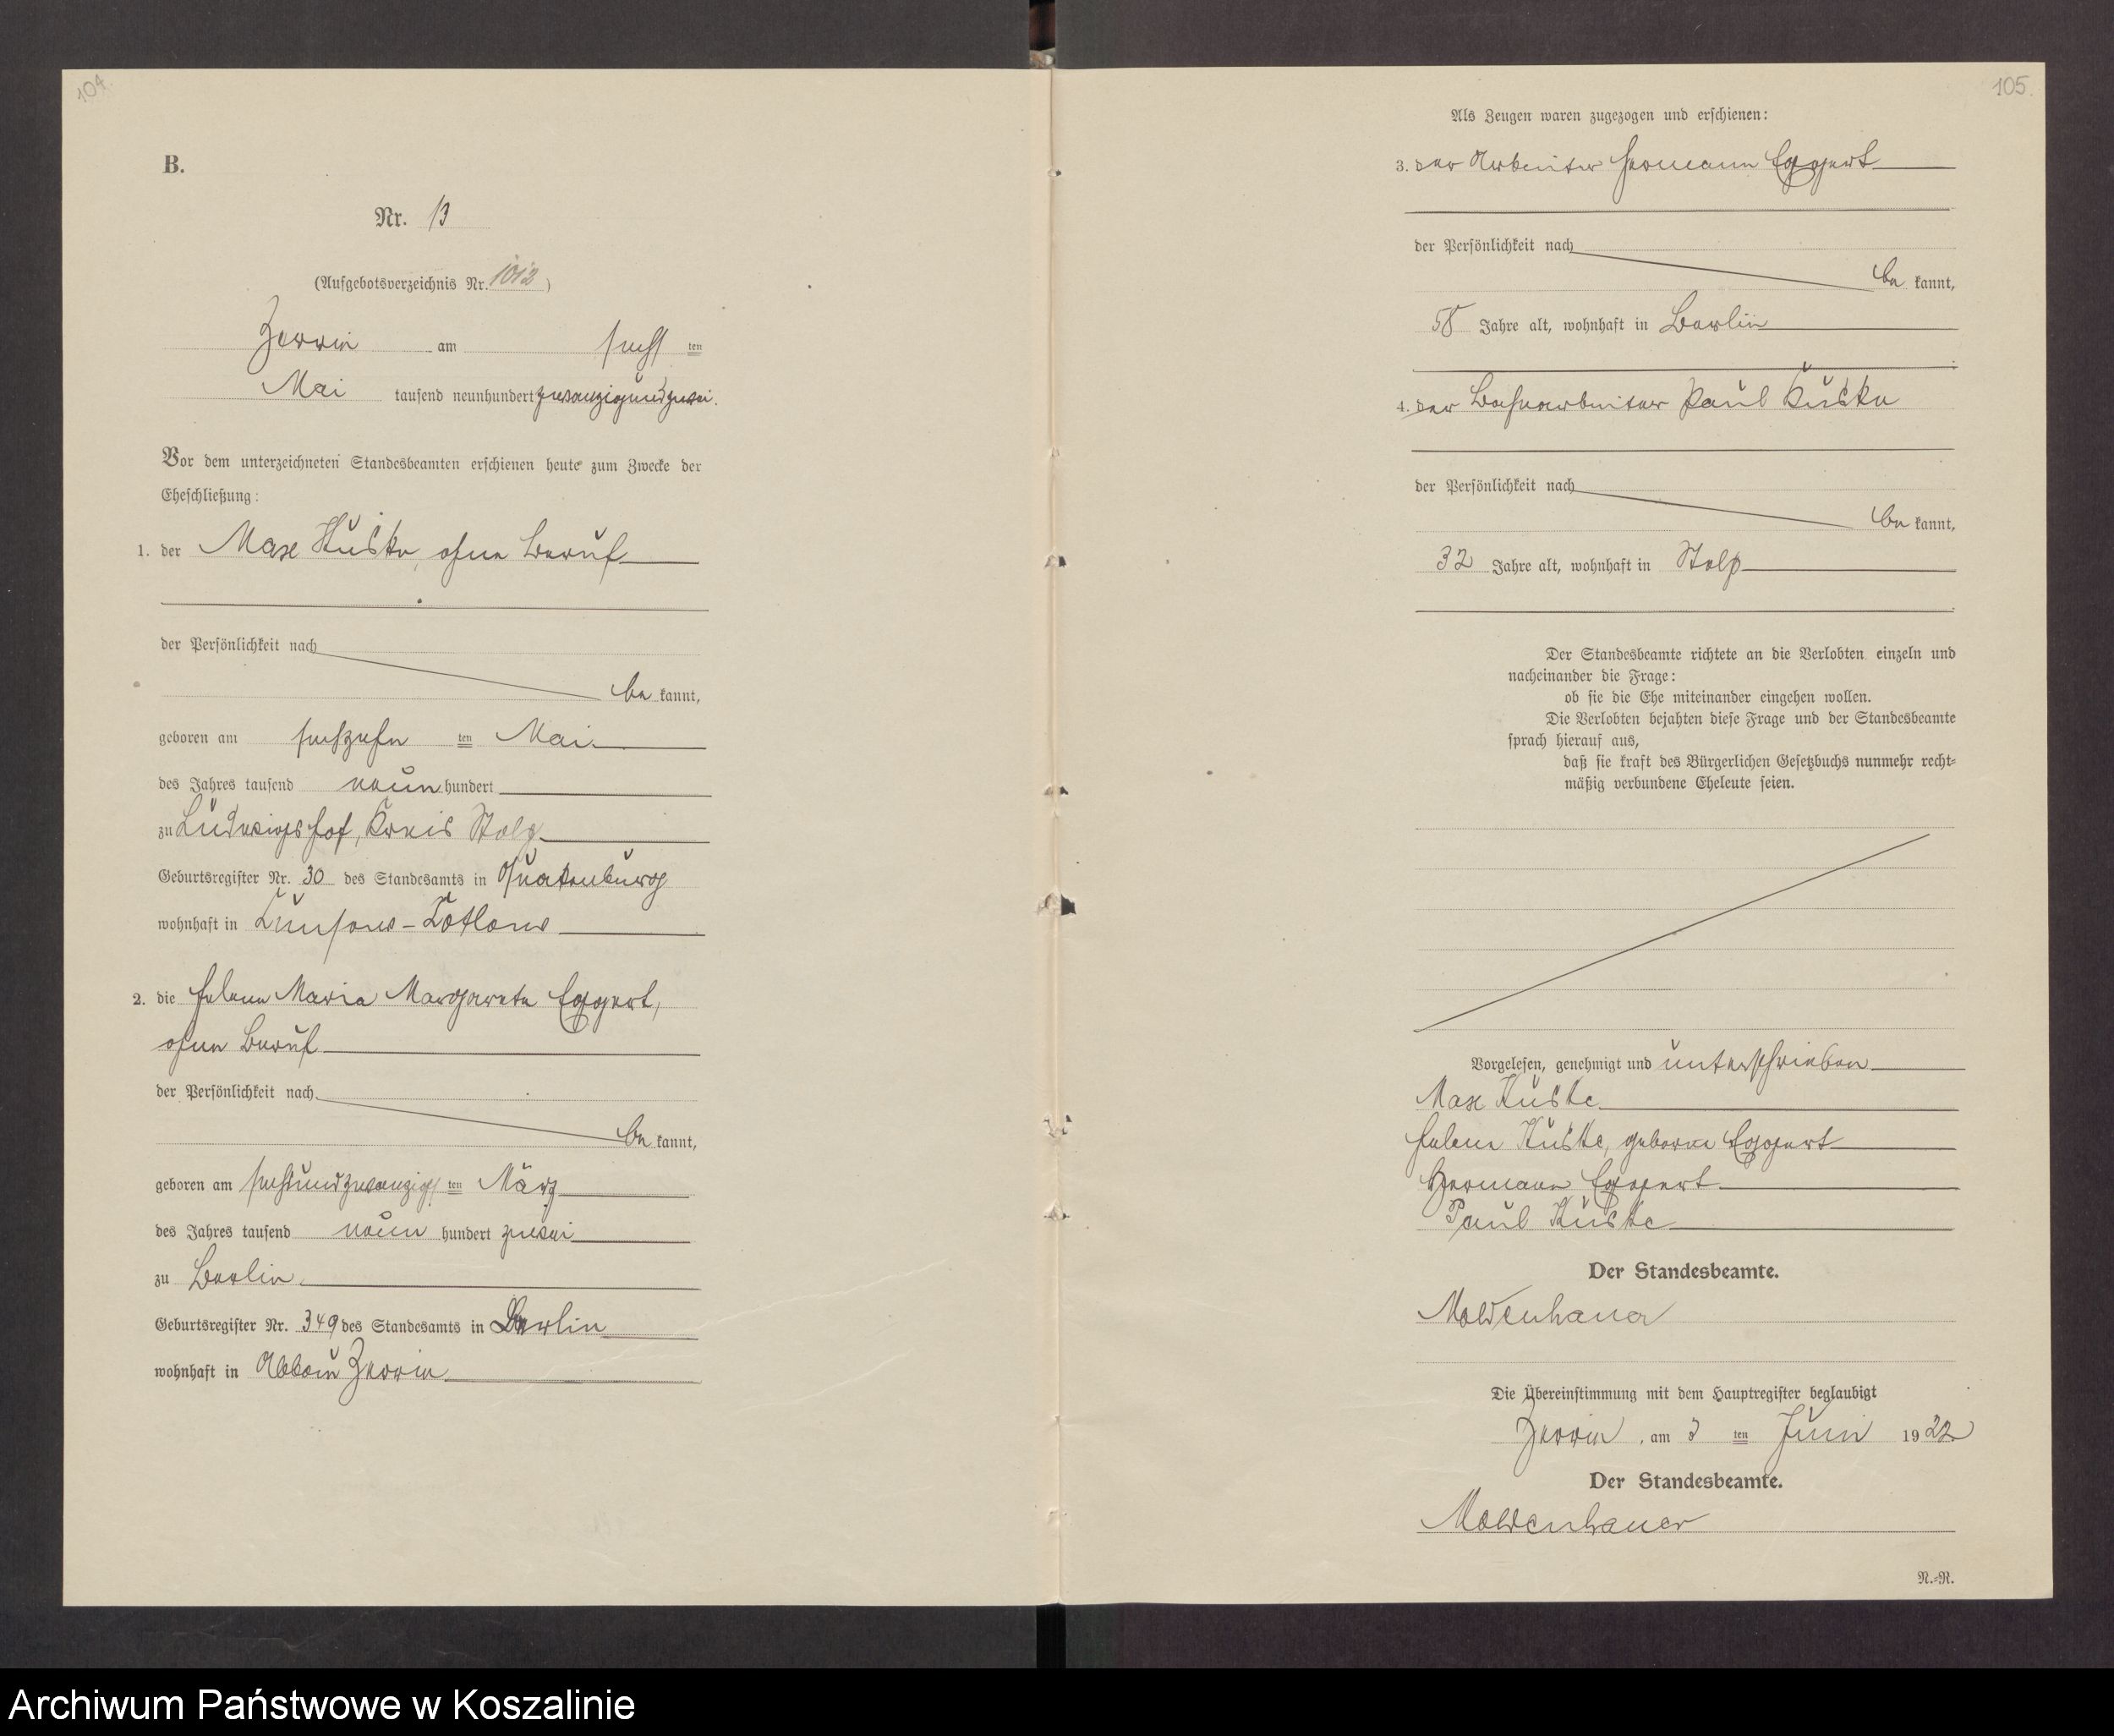 104.
B.
Nr. 13
(Aufgebotsverzeichnis Nr. )
Zerrin am sechsten
Mai tausend neunhundert zwanzigundzwei.
Vor dem unterzeichneten Standesbeamten erschienen heute zum Zwecke der
Eheschließung:
1. der Max Kuske, ohne Beruf
der Persönlichkeit nach
bekannt,
geboren am sechzehnten Mai
des Jahres tausend neunhundert
zu Ludwigshof, Kreis Stolp
Geburtsregister Nr. 30 des Standesamts in Quakenburg
wohnhaft in
2. die Helene Maria Margarete Eggert,
ohne Beruf
der Persönlichkeit nach
bekannt,
geboren am sechsundzwanzigsten März
des Jahres tausend neun hundert zwei
zu Berlin.
Geburtsregister Nr. 349 des Standesamts in Berlin
wohnhaft in Abbau Zerrin
105.
Als Zeugen waren zugezogen und erschienen:
3. der Arbeiter Hermann Eggert
der Persönlichkeit nach
bekannt,
58 Jahre alt, wohnhaft in Berlin
4. der Bahnarbeiter Paul Kuske
der Persönlichkeit nach
bekannt,
32 Jahre alt, wohnhaft in Stolp
Der Standesbeamte richtete an die Verlobten einzeln und
nacheinander die Frage:
ob sie die Ehe miteinander eingehen wollen.
Die Verlobten bejahten diese Frage und der Standesbeamte
sprach hierauf aus,
daß sie kraft des Bürgerlichen Gesetzbuchs nunmehr recht-
mäßig verbundene Eheleute seien.
Vorgelesen, genehmigt und unterschrieben
Max Kuske
Helene Kuske, geborne Eggert
Hermann Eggert
Paul Kuske
Der Standesbeamte.
Moldenhauer
Die Übereinstimmung mit dem Hauptregister beglaubigt
Zerrin, am 3 ten Juni 1922
Der Standesbeamte.
Moldenhauer
N.-R.
Archiwum Państwowe w Koszalinie